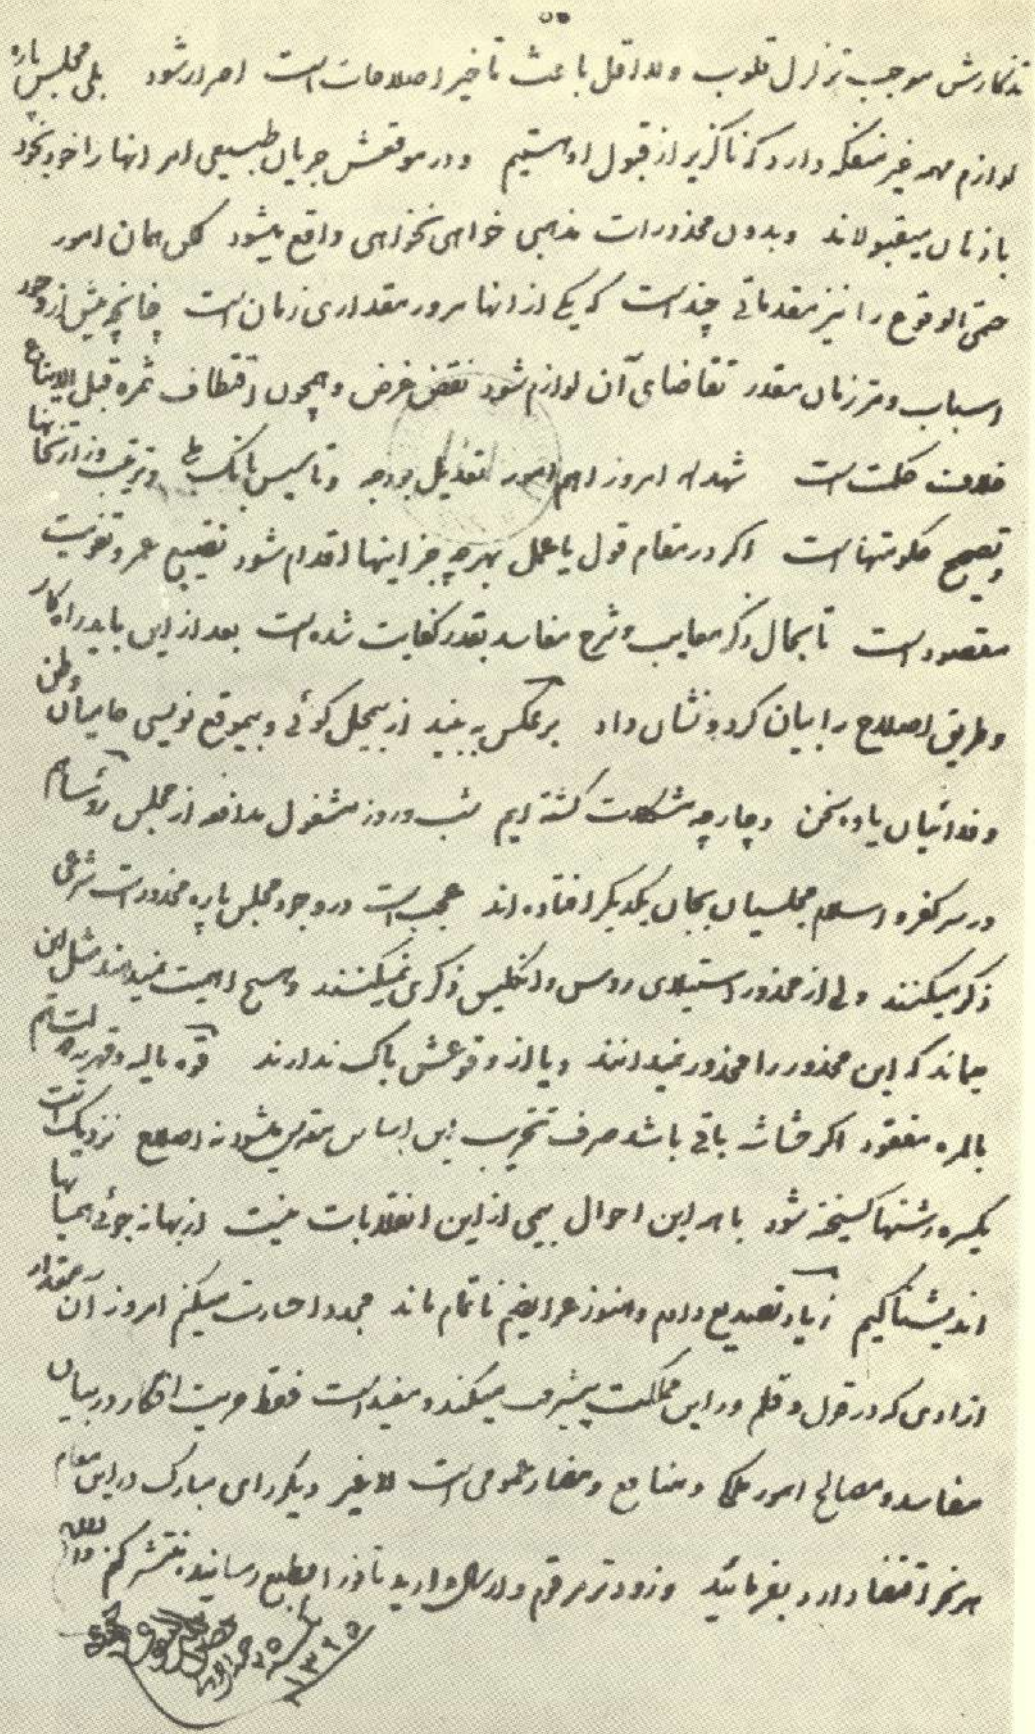 تذکارش موجب تزلزل قلوب و لااقل باعث تأخیر اصلاحات است اصرار شود بلی مجلس پاره
لوازم مهمه غیر منفکه دارد که ناگزیر از قبول او هستیم و در موقعش جریان طبیعی امر انها را خود بخود
بازمان میقبولاند و بدون محذورات مذهبی خواهی نخواهی واقع میشود لکن همان امور
حتمی الوقوع را نیز مقدماتی چند است که یکی از انها مرور مقداری زمان است چنانچه پیش از وجود
اسباب و مرّ زمان مقدر تقاضای آن لوازم شود نقض غرض و همچون اقتطاف ثمره قبل الایناع
خلاف حکمت است امروز اهم امور تعدیل بودجه و تاسیس بانک ملی و ترتیب وزارتخانها
و تصحیح حکومتهاست اگر در مقام قول یا عمل بهر چه جز اینها اقدام شود تضییع عمر و تفویت
مقصود است تا بحال ذکر معایب و شرح مفاسد بقدر کفایت شده است بعد از این باید راه کار
و طریق اصلاح را بیان کرد و نشان داد برعکس به بینید از بیمحل گوئی و بیموقع نویسی حامیان وطن
و فدائیان یاوه سخن دچار چه مشکلات گشته ایم شب و روز مشغول مدافعه از مجلس
در سر کفر و اسلام مجلسیان بجان یکدیگر افتاده اند عجب است در وجود مجلس پاره محذورات شرعی
ذکر میکنند ولی از محذور استیلای روس و انگلیس ذکری نمیکنند و هیچ اهمیت نمیدهند مثل این
میماند که این محذور را محذور نمیدانند و یا از وقوعش باک ندارند قوه مالیه و قهریه دولت هم
بالمره مفقود اگر حشاشه باقی باشد صرف تخریب این اساس مقدس میشود نه اصلاح نزدیک است
یکسره رشتها گسیخته شود با همه این احوال بیمی از این انقلابات نیست از بهانه جوئی
اندیشناکیم زیاد تصدیع دادم و هنوز عرایضم ناتمام ماند مجددا جسارت میکنم امروز آن مقدار
ازادی که در قول و قلم در این مملکت پیشرفت میکند و مفید است فقط حریت افکار در بیان
مفاسد و مصالح امور ملکی و منافع و مضار عمومی است لاغیر دیگر رای مبارک در این مقام
هر نحو اقتضا دارد بفرمائید و زودتر مرقوم و ارسال دارید تا فورا بطبع رسانیده منتشر کنم
۱۳۲۵